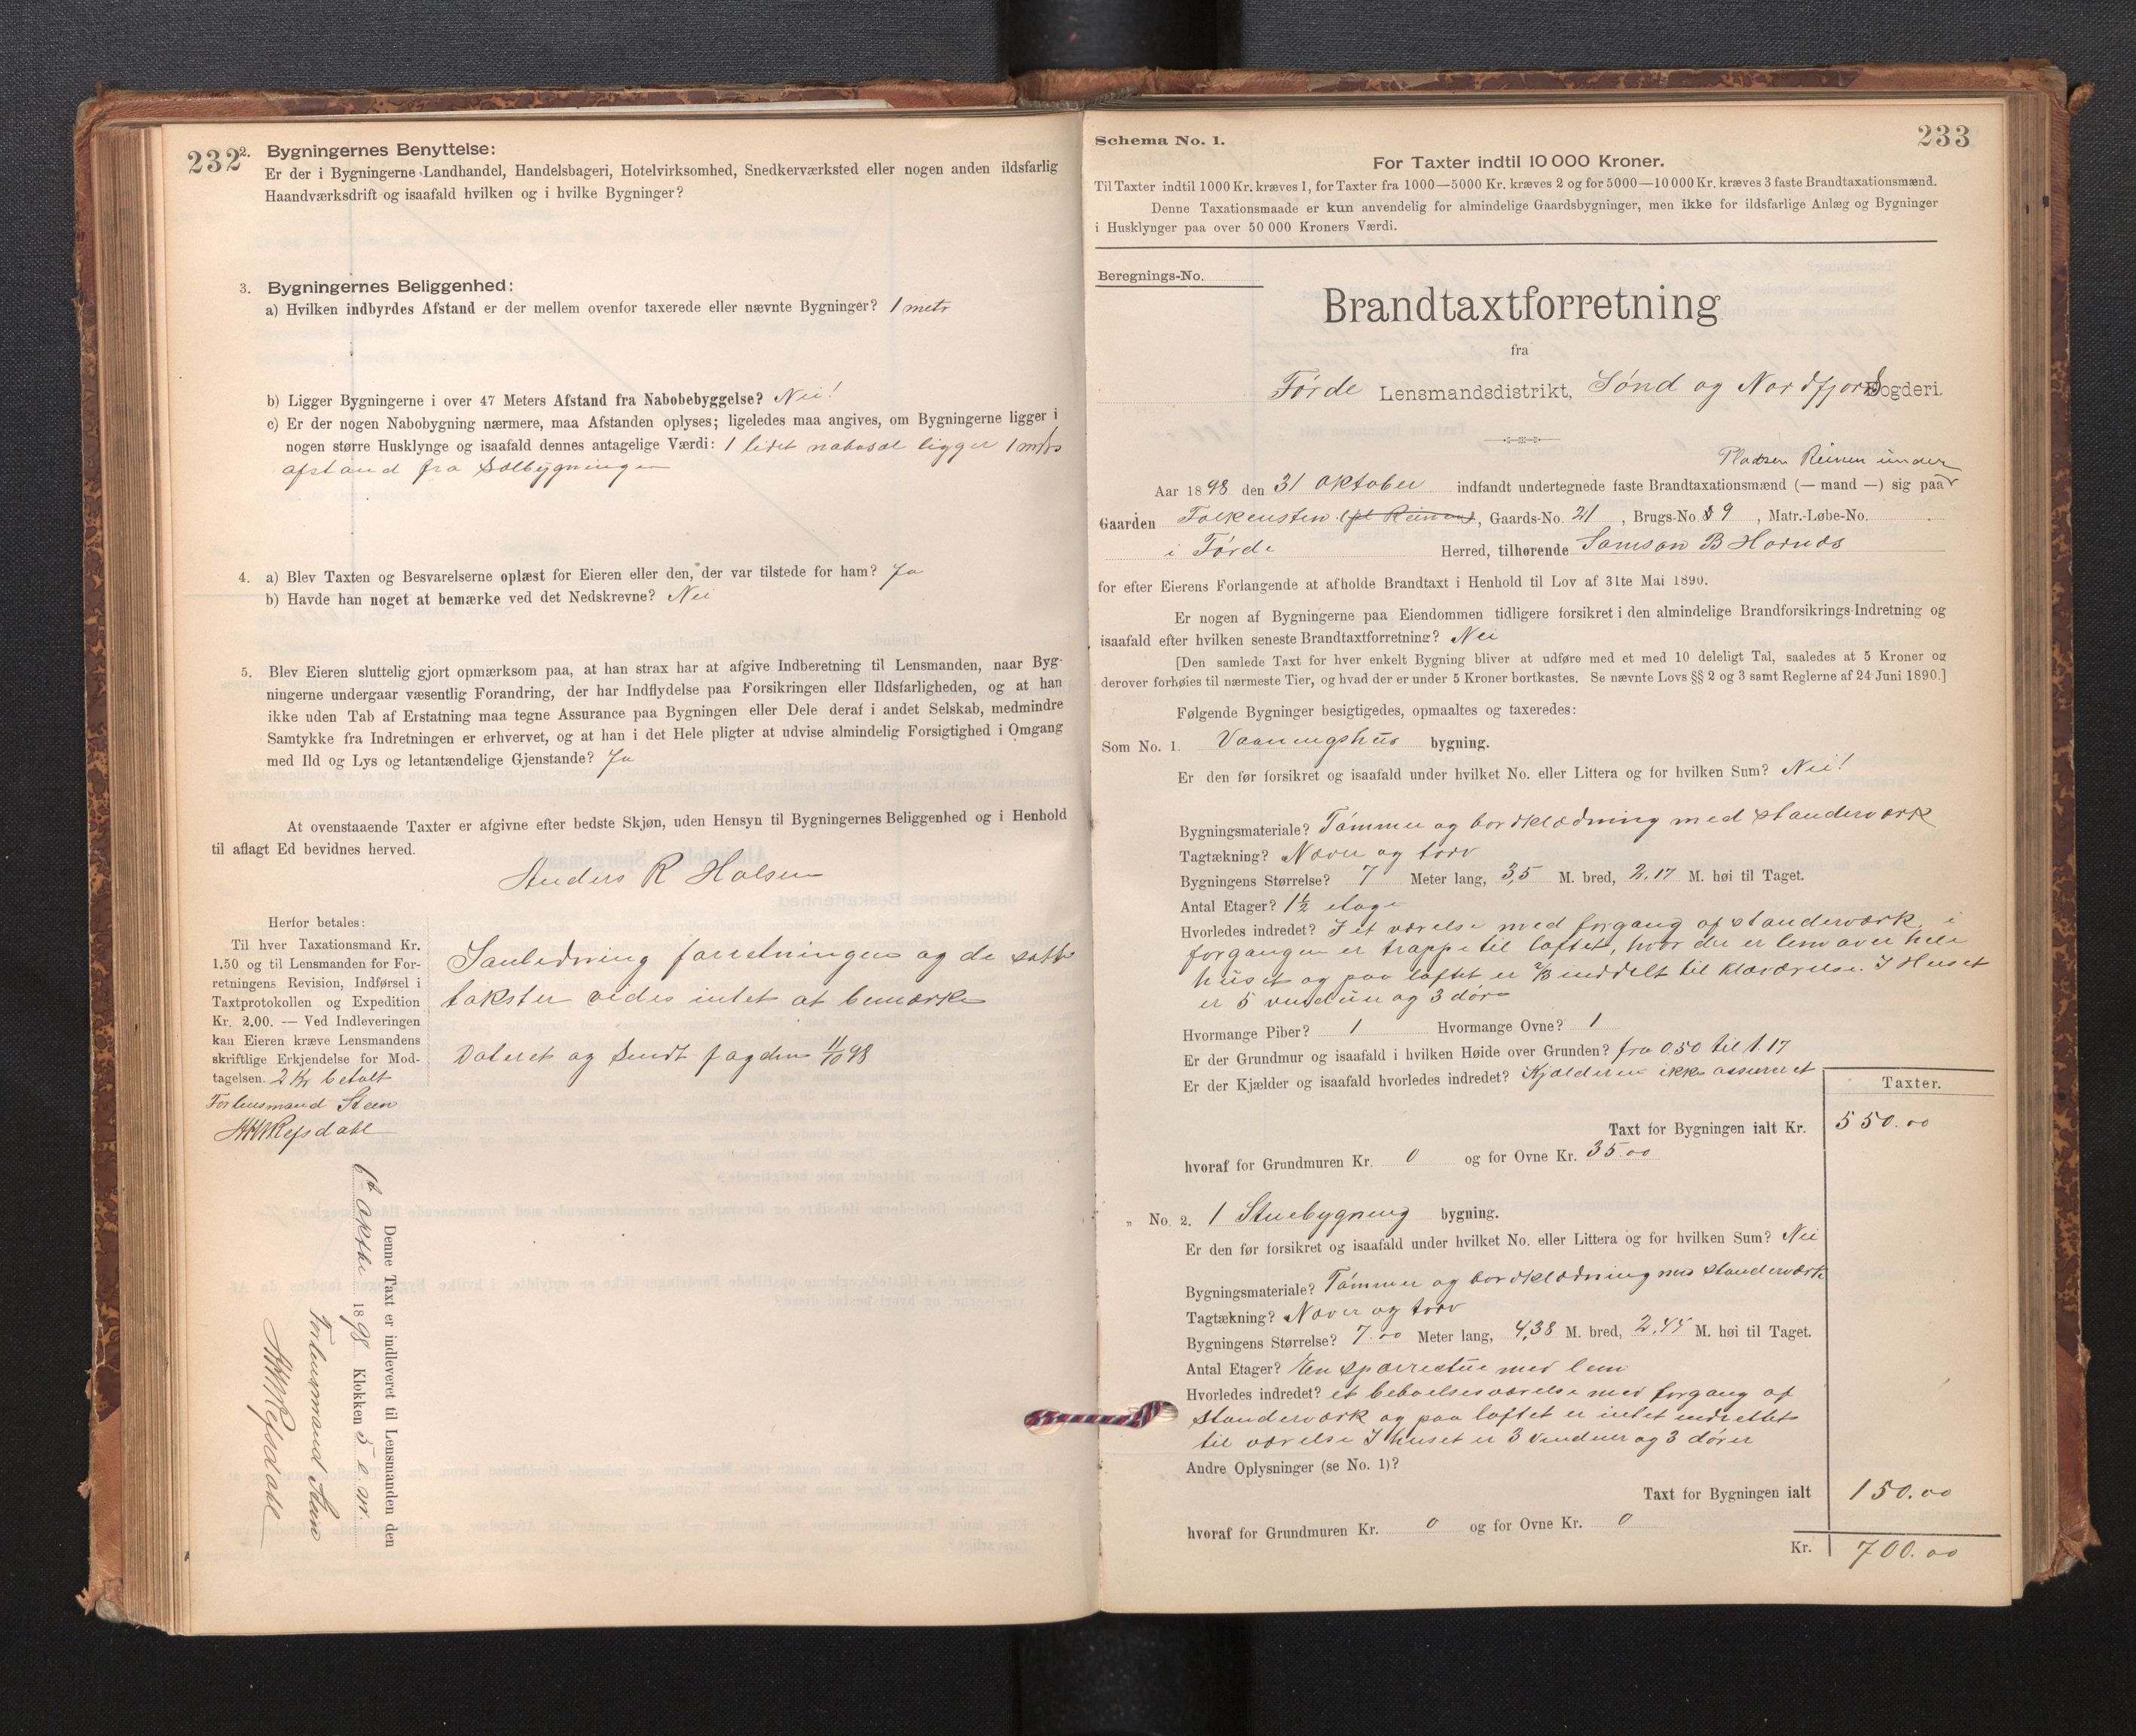 232
2. Bygningernes Benyttelse:
Er der i Bygningerne Landhandel, Handelsbageri, Hotelvirksomhed, Snedkerværksted eller nogen anden ildsfarlig
Haandværksdrift og isaafald hvilken og i hvilke Bygninger?
3. Bygningernes Beliggenhed:
a) Hvilken indbyrdes Afstand er der mellem ovenfor taxerede eller nævnte Bygninger? 1 metr
b) Ligger Bygningerne i over 47 Meters Afstand fra Nabobebyggelse? Nei!
c) Er der nogen Nabobygning nærmere, maa Afstanden oplyses; ligeledes maa angives, om Bygningerne ligger i
nogen større Husklynge og isaafald dennes antagelige Værdi: 1 lidet ligger 1
afstand fra
4. a) Blev Taxten og Besvarelserne oplæst for Eieren eller den, der var tilstede for ham? Ja
b) Havde han noget at bemærke ved det Nedskrevne? Nei
5. Blev Eieren sluttelig gjort opmærksom paa, at han strax har at afgive Indberetning til Lensmanden, naar Byg-
ningerne undergaar væsentlig Forandring, der har Indflydelse paa Forsikringen eller Ildsfarligheden, og at han
ikke uden Tab af Erstatning maa tegne Assurance paa Bygningen eller Dele deraf i andet Selskab, medmindre
Samtykke fra Indretningen er erhvervet, og at han i det Hele pligter at udvise almindelig Forsigtighed i Omgang
med Ild og Lys og letantændelige Gjenstande? Ja
At ovenstaaende Taxter er afgivne efter bedste Skjøn, uden Hensyn til Bygningernes Beliggenhed og i Henhold
til aflagt Ed bevidnes herved.
Anders R Halsen
Herfor betales:
Til hver Taxationsmand Kr.
1.50 og til Lensmanden for For-
retningens Revision, Indførsel i
Taxtprotokollen og Expedition
Kr. 2.00. — Ved Indleveringen
kan Eieren kræve Lensmandens
skriftlige Erkjendelse for Mod-
tagelsen. 2 Kr betalt
For lensmand Steen
HMRefsdahl
I anledning forretningen og de satte
takster vides intet at bemærke
Dateret og Sendt fogden 11/10 98
Denne Taxt er indleveret til Lensmanden den
6te oktbr 1898 Klokken 5 e.m.
For lensmand Steen
HMRefsdahl
233
Schema No. 1.
For Taxter indtil 10 000 Kroner.
Til Taxter indtil 1000 Kr. kræves 1, for Taxter fra 1000—5000 Kr. kræves 2 og for 5000—10 000 Kr. kræves 3 faste Brandtaxationsmænd.
Denne Taxationsmaade er kun anvendelig for almindelige Gaardsbygninger, men ikke for ildsfarlige Anlæg og Bygninger
i Husklynger paa over 50 000 Kroners Værdi.
Beregnings-No.
Brandtaxtforretning
fra
Førde Lensmandsdistrikt, Sønd og Nordfjords Fogderi.
Pladsen Reinen under
Aar 1898 den 31 oktober indfandt undertegnede faste Brandtaxationsmænd (— mand —) sig paa
Gaarden Falkensten (pl Reinen), Gaards-No. 21, Brugs-No. 9, Matr.-Løbe-No.
i Førde Herred, tilhørende Samson B Hornæs
for efter Eierens Forlangende at afholde Brandtaxt i Henhold til Lov af 31te Mai 1890.
Er nogen af Bygningerne paa Eiendommen tidligere forsikret i den almindelige Brandforsikrings-Indretning og
isaafald efter hvilken seneste Brandtaxtforretning? Nei
[Den samlede Taxt for hver enkelt Bygning bliver at udføre med et med 10 deleligt Tal, saaledes at 5 Kroner og
derover forhøies til nærmeste Tier, og hvad der er under 5 Kroner bortkastes. Se nævnte Lovs §§ 2 og 3 samt Reglerne af 24 Juni 1890.]
Følgende Bygninger besigtigedes, opmaaltes og taxeredes:
Som No. 1. Vaaningshus bygning.
Er den før forsikret og isaafald under hvilket No. eller Littera og for hvilken Sum? Nei!
Bygningsmateriale? Tømmer og bordklædning med standerværk
Tagtækning? Næver og torv
Bygningens Størrelse? 7 Meter lang, 3,5 M. bred, 2.17 M. høi til Taget.
Antal Etager? 1½ etage
Hvorledes indredet? I et værelse med forgang af standerværk, i
forgangen er trappe til loftet, hvor der er lem over hele
huset og paa loftet er 2/3 inddelt til klæværelse. I Huset
er 5 vinduer og 3 døre
Hvormange Piber? 1 Hvormange Ovne? 1
Er der Grundmur og isaafald i hvilken Høide over Grunden? fra 0.50 til 1.17
Er der Kjælder og isaafald hvorledes indredet? Kjælderen ikke assureret
Taxter.
Taxt for Bygningen ialt Kr. 550.00
hvoraf for Grundmuren Kr. 0 og for Ovne Kr. 35.00
„ No. 2. 1 Stuebygning bygning.
Er den før forsikret og isaafald under hvilket No. eller Littera og for hvilken Sum? Nei
Bygningsmateriale? Tømmer og bordklædning med standerværk
Tagtækning? Næver og torv
Bygningens Størrelse? 7.00 Meter lang, 4,38 M. bred, 2.44 M. høi til Taget.
Antal Etager? En sparrestue med lem
Hvorledes indredet? et beboelsesværelse med forgang af
standerværk og paa loftet er intet indrettet
til værelse I huset er 3 vinduer og 3 dører
Andre Oplysninger (se No. 1)?
Taxt for Bygningen ialt 150.00
hvoraf for Grundmuren Kr. 0 og for Ovne Kr. 0
Kr. 700.00